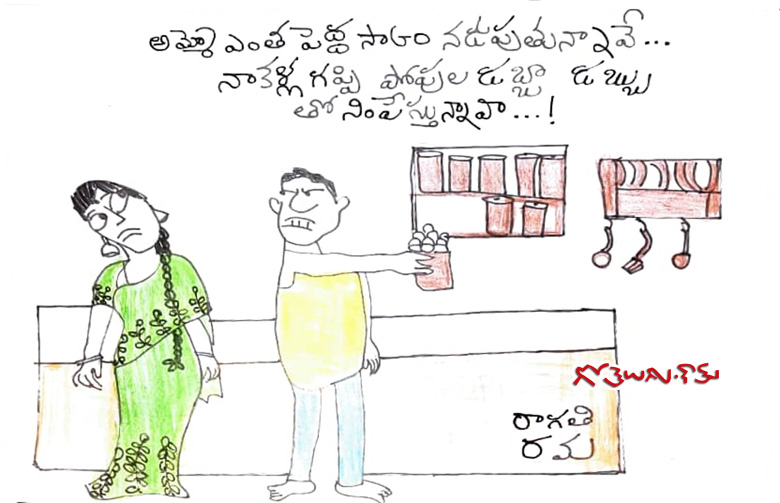 అమ్మో ఎంత పెద్ద సాగం నడుపుతున్నావే...
నాకళ్ళ గప్పి పోపుల డబ్బా డబ్బు
తో నింపేస్తున్నావా...!
గోతెలుగు.కామ్
రాగతి
రమ